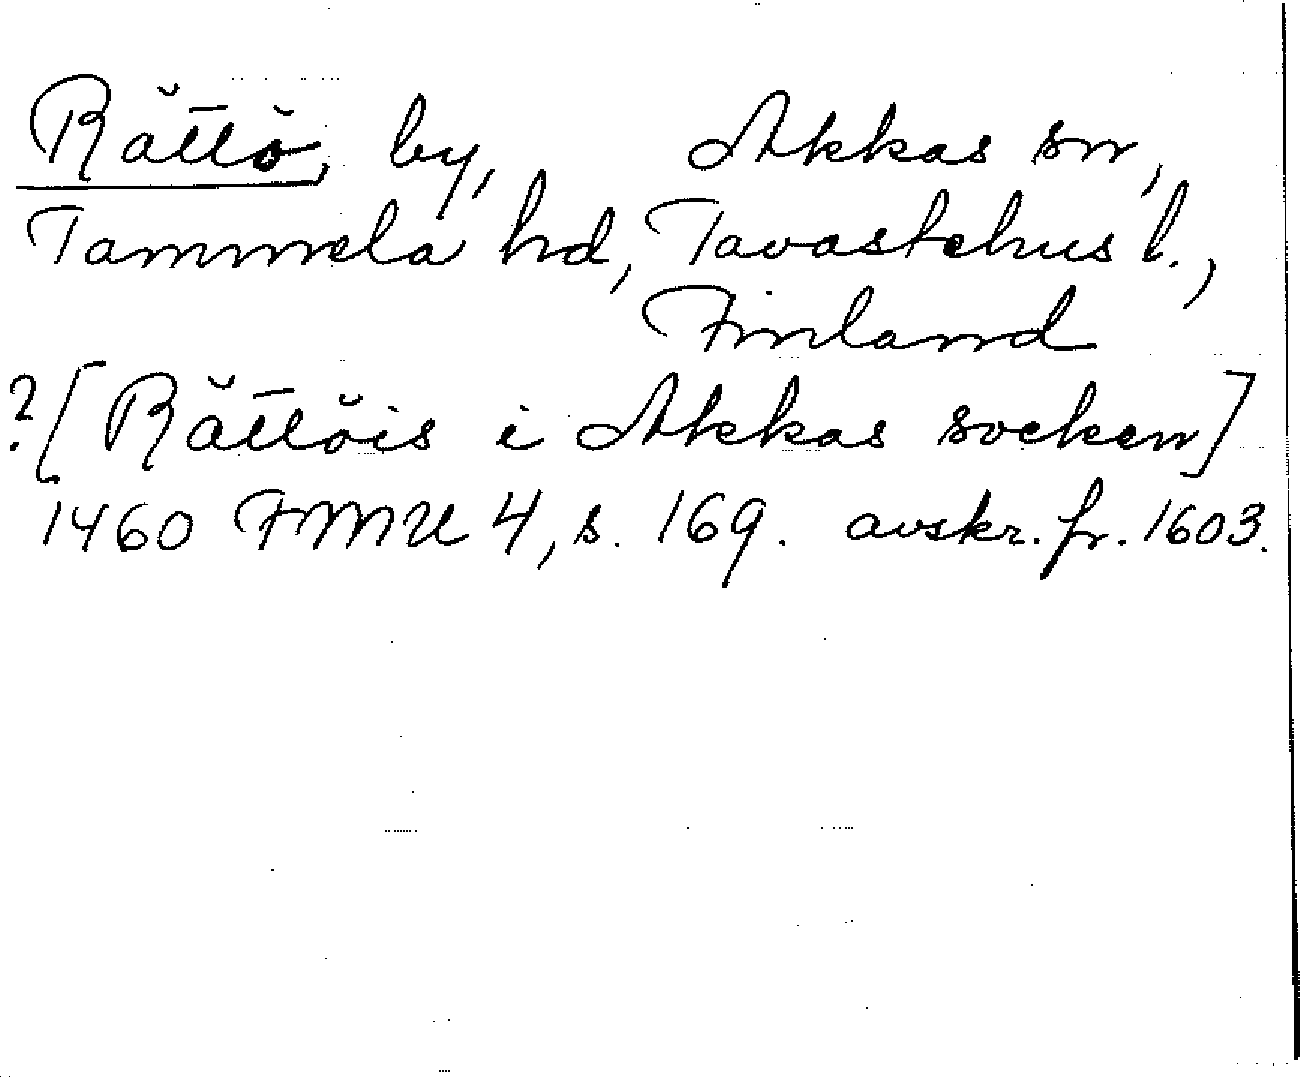 Rättö, by, Akkas sn,
Tammela hd, Tavastehus l.,
Finland
?[Rättöis i Akkas socken]
1460 FMU 4, s. 169. avskr. fr. 1603.